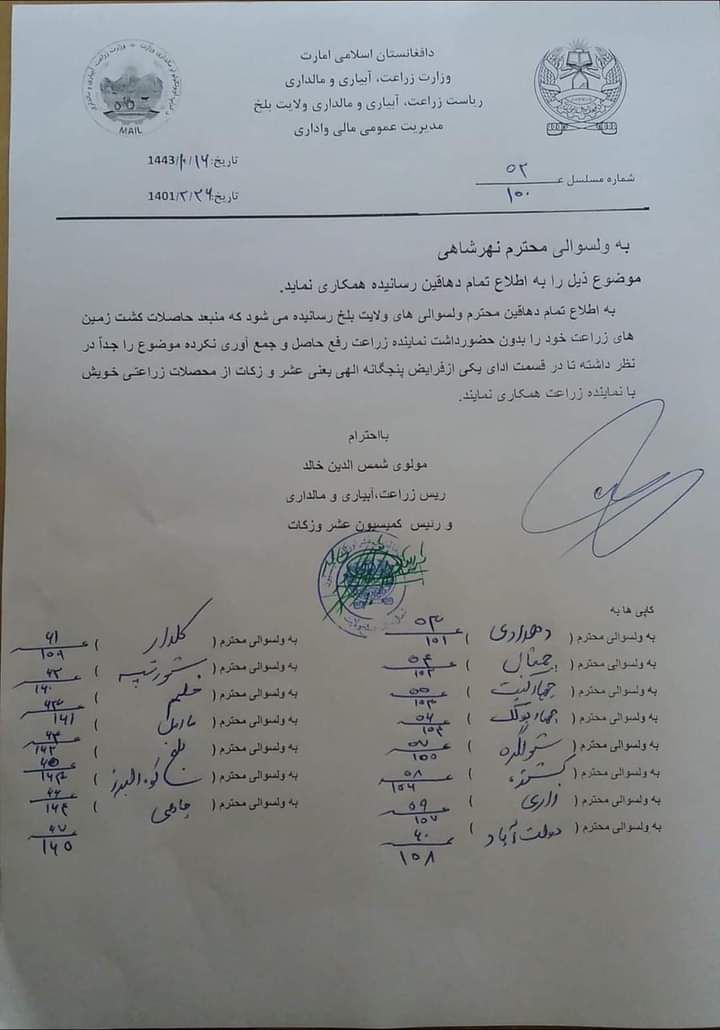 دافغانستان اسلامی امارت
وزارت زراعت، آبیاری و مالداری
ریاست زراعت، آبیاری و مالداری ولایت بلخ
مدیریت عمومی مالی واداری
MAIL
تاریخ: 1443/۱۰/۱۶
شماره مسلسل عـ ۵۲
۱۰۰
تاریخ: 1401/۲/۲۶
به ولسوالی محترم نهرشاهی
موضوع ذیل را به اطلاع تمام دهاقین رسانیده همکاری نماید.
به اطلاع تمام دهاقین محترم ولسوالی های ولایت بلخ رسانیده می شود که منبعد حاصلات کشت زمین
های زراعت خود را بدون حضورداشت نماینده زراعت رفع حاصل و جمع آوری نکرده موضوع را جداً در
نظر داشته تا در قسمت ادای یکی ازفرایض پنجگانه الهی یعنی عشر و زکات از محصلات زراعتی خویش
با نماینده زراعت همکاری نمایند.
بااحترام
مولوی شمس الدین خالد
ریس زراعت،آبیاری و مالداری
و رئیس کمیسیون عشر وزکات
کاپی ها به
به ولسوالی محترم ( دهدادی ) عـ ۵۳
۱۰۱
به ولسوالی محترم ( چمتال ) ۵۴
۱۰۲
به ولسوالی محترم ( چهارکنت ) ۵۵
۱۰۳
به ولسوالی محترم ( چهاربولک ) ۵۶
به ولسوالی محترم ( شولگره ) ۵۷
۱۰۵
به ولسوالی محترم ( کشنده ) ۵۸
۱۰۶
به ولسوالی محترم ( زاری ) ۵۹
۱۰۷
به ولسوالی محترم ( دولت آباد ) ۶۰
۱۰۸
به ولسوالی محترم ( کلدار ) عـ ۶۱
۱۵۹
به ولسوالی محترم ( شورتپه )
به ولسوالی محترم ( خلم )
۱۶۱
به ولسوالی محترم ( مارمل )
۱۶۲
به ولسوالی محترم ( بلخ ) ۶۵
به ولسوالی محترم ( کوه البرز )
۱۶۴
به ولسوالی محترم ( چاهی ) ۶۷
۱۶۵